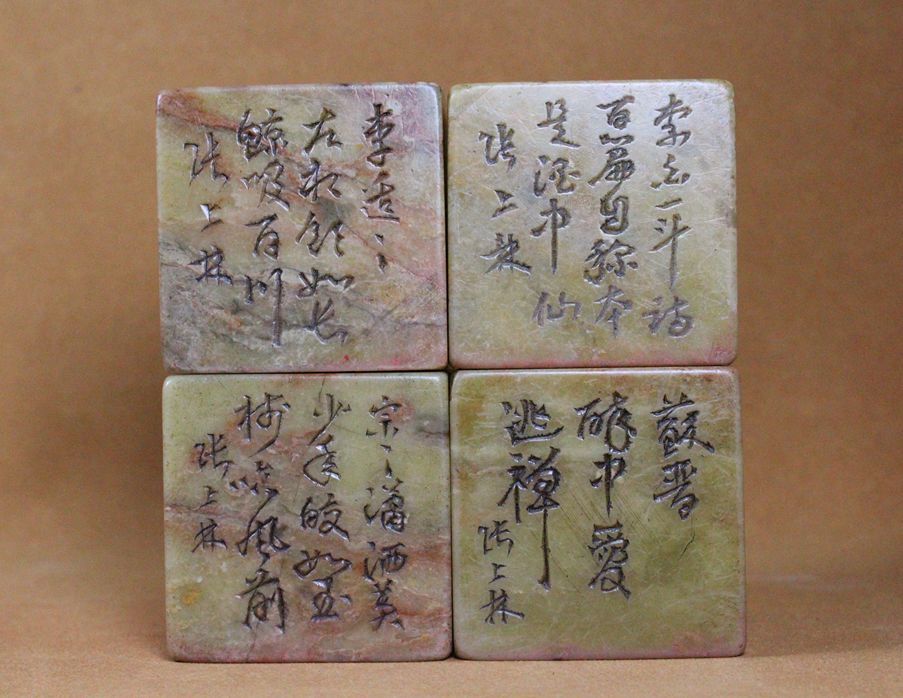 李白一斗詩
百篇自稱臣
是酒中仙
張上林
李适之
左相飲如長
鯨吸百川
張上林
蘇晋
醉中愛
逃禪
張上林
宗之瀟洒美
少年皎如玉
樹臨風前
張上林